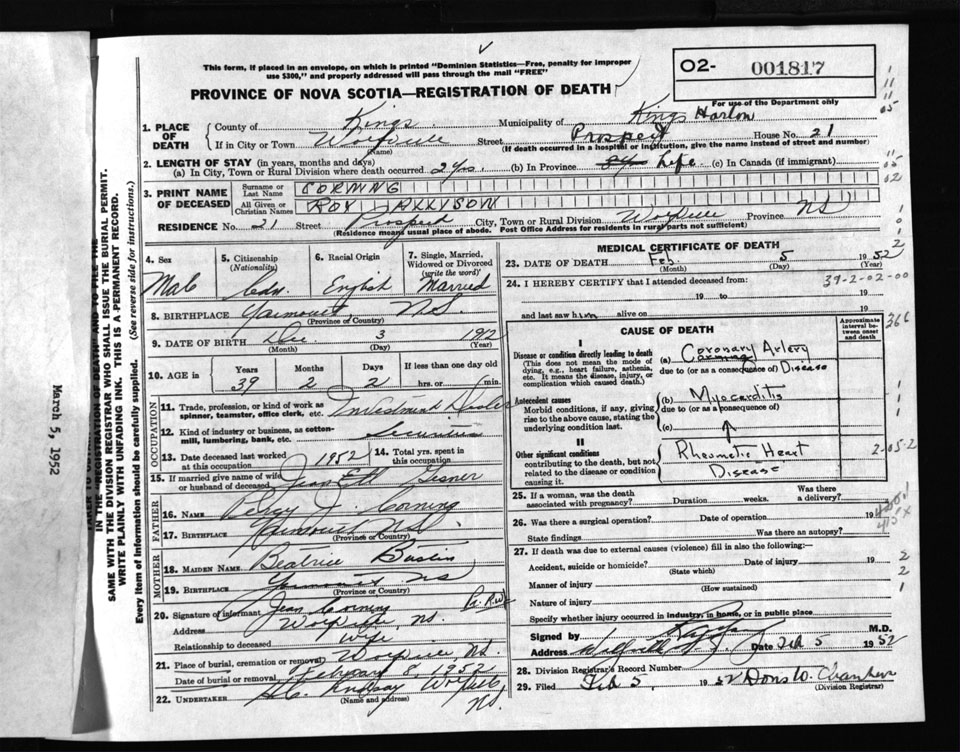 This form, if placed in an envelope, on which is printed "Dominion Statistics—Free, penalty for improper
use $300," and properly addressed will pass through the mail "FREE"
PROVINCE OF NOVA SCOTIA—REGISTRATION OF DEATH
O2- 001817
For use of the Department only
1. PLACE OF DEATH { County of Kings Municipality of Kings
If in City or Town Wolfville (Name) Street Prospect House No. 21
(If death occurred in a hospital or institution, give the name instead of street and number)
2. LENGTH OF STAY (in years, months and days)
(a) In City, Town or Rural Division where death occurred 2 yrs. (b) In Province Life (c) In Canada (if immigrant)
3. PRINT NAME OF DECEASED { Surname or Last Name CORNING
All Given or Christian Names ROY
RESIDENCE No. 21 Street Prospect City, Town or Rural Division Wolfville Province NS
(Residence means usual place of abode. Post Office Address for residents in rural parts not sufficient)
4. Sex Male
5. Citizenship (Nationality) Cdn.
6. Racial Origin English
7. Single, Married, Widowed or Divorced (write the word) Married
8. BIRTHPLACE Yarmouth N.S. (Province or Country)
9. DATE OF BIRTH Dec 3 1912 (Month) (Day) (Year)
10. AGE in { Years 39 Months 2 Days 2 If less than one day old hrs. or min.
OCCUPATION
11. Trade, profession, or kind of work as spinner, teamster, office clerk, etc. Investment Dealer
12. Kind of industry or business, as cotton-mill, lumbering, bank, etc. Securities
13. Date deceased last worked at this occupation 1952
14. Total yrs. spent in this occupation
15. If married give name of wife or husband of deceased Gesner
FATHER
16. NAME Percy J. Corning
17. BIRTHPLACE Yarmouth N.S. (Province or Country)
MOTHER
18. MAIDEN NAME Beatrice
19. BIRTHPLACE Yarmouth NS (Province or Country)
20. Signature of informant Jean Corning
Address Wolfville, NS.
Relationship to deceased Wife
21. Place of burial, cremation or removal Wolfville NS.
Date of burial or removal February 8, 1952
22. UNDERTAKER Lindsay Wolfville NS. (Name and address)
MEDICAL CERTIFICATE OF DEATH
23. DATE OF DEATH Feb. 5 1952 (Month) (Day) (Year)
24. I HEREBY CERTIFY that I attended deceased from: 39-2-02-00
19 to 19
and last saw h alive on 19
CAUSE OF DEATH
Approximate interval between onset and death
I
Disease or condition directly leading to death
(This does not mean the mode of dying, e.g., heart failure, asthenia, etc. It means the disease, injury, or complication which caused death.)
(a) Coronary Artery
due to (or as a consequence of) Disease
Antecedent causes
Morbid conditions, if any, giving rise to the above cause, stating the underlying condition last.
(b) Myocarditis
due to (or as a consequence of)
(c)
II
Other significant conditions
contributing to the death, but not related to the disease or condition causing it.
Rheumatic Heart
Disease
25. If a woman, was the death associated with pregnancy? Duration weeks. Was there a delivery?
26. Was there a surgical operation? Date of operation 19
State findings Was there an autopsy?
27. If death was due to external causes (violence) fill in also the following:—
Accident, suicide or homicide? (State which) Date of injury 19
Manner of injury (How sustained)
Nature of injury
Specify whether injury occurred in industry, in home, or in public place
Signed by M.D.
Address Wolfville N.S. Date Feb 5 1952
28. Division Registrar's Record Number
29. Filed Feb 5, 1952 Doris W. Chambers
(Division Registrar)
IN THE "REGISTRATION OF DEATH" AND TO FILE THE
SAME WITH THE DIVISION REGISTRAR WHO SHALL ISSUE THE BURIAL PERMIT.
WRITE PLAINLY WITH UNFADING INK. THIS IS A PERMANENT RECORD.
Every item of information should be carefully supplied. (See reverse side for instructions.)
March 5, 1952